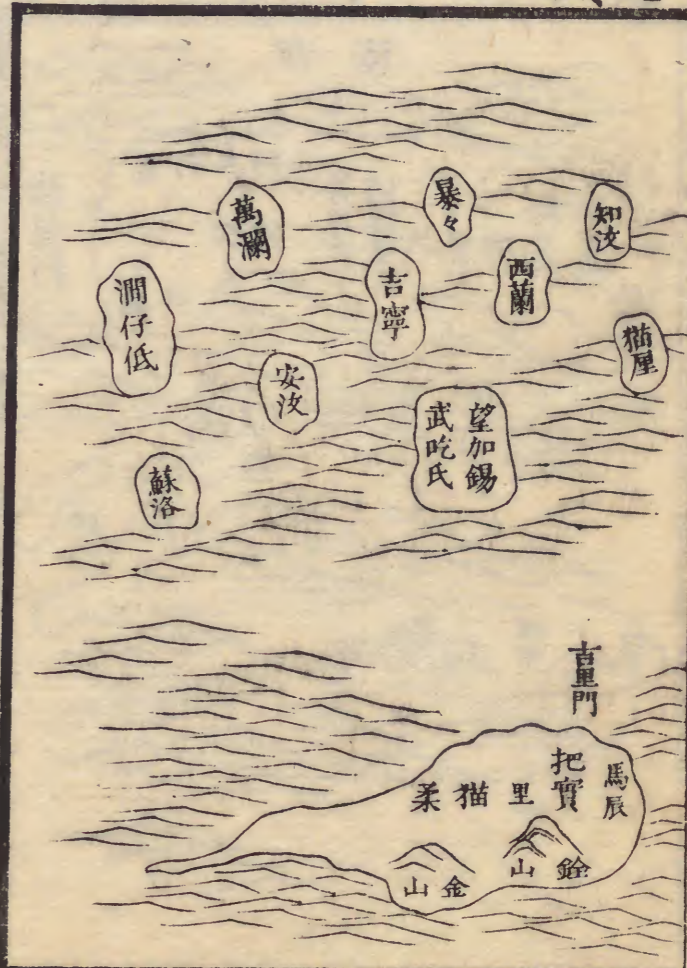 知汶
暴々
萬瀾
西蘭
吉寧
澗仔低
猫厘
望加錫
武吃氏
安汶
蘇洛
吉里門
馬辰
把實
里猫柔
山
金山